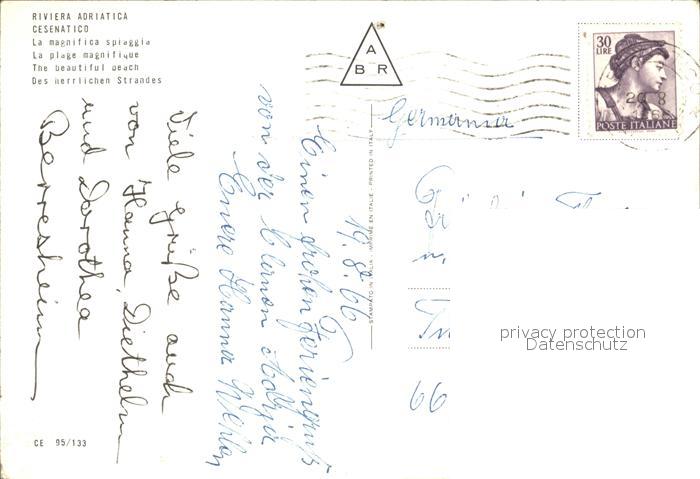 RIVIERA ADRIATICA
CESENATICO
La magnifica spiaggia
La plage magnifique
The beautiful beach
Des herrlichen Strandes
A
B R
30
LIRE
POSTE ITALIANE
Germania
19.8.66
Einen frohen Feriengruß
von der blauen Adria
Eure Hanna
Viele Grüße auch
von Hanna, Diethelm
und Dorothea
Berresheim
STAMPATO IN ITALIA - IMPRIMÉ EN ITALIE - PRINTED IN ITALY
66
privacy protection
Datenschutz
CE 95/133